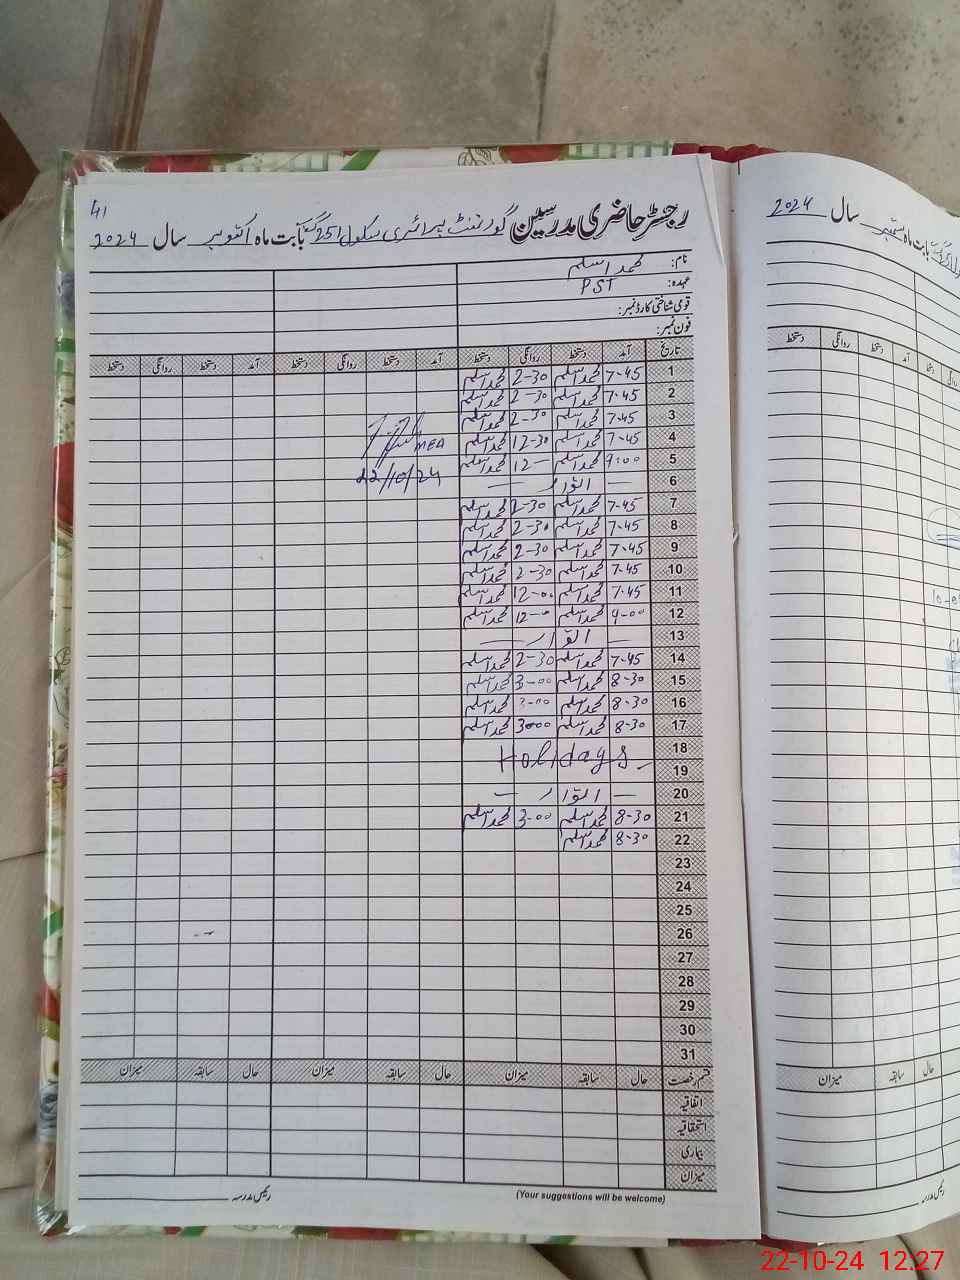 41
رجسٹر حاضری مدرسین گورنمنٹ پرائمری سکول 251 بابت ماہ اکتوبر سال 2024
نام: محمد اسلم
عہدہ: PST
قومی شناختی کارڈ نمبر:
فون نمبر:
تاریخ آمد دستخط روانگی دستخط آمد دستخط روانگی دستخط آمد دستخط روانگی دستخط
1 7-45 محمد اسلم 2-30 محمد اسلم
2 7-45 محمد اسلم 2-30 محمد اسلم
3 7-45 محمد اسلم 2-30 محمد اسلم
4 7-45 محمد اسلم 12-30 محمد اسلم MEA
5 9:00 محمد اسلم 12- محمد اسلم
6 — اتوار — 22/10/24
7 7-45 محمد اسلم 2-30 محمد اسلم
8 7-45 محمد اسلم 2-30 محمد اسلم
9 7-45 محمد اسلم 2-30 محمد اسلم
10 7-45 محمد اسلم 2-30 محمد اسلم
11 7-45 محمد اسلم 12-00 محمد اسلم
12 9-00 محمد اسلم 12-0 محمد اسلم
13 — اتوار —
14 7-45 محمد اسلم 2-30 محمد اسلم
15 8-30 محمد اسلم 3-00 محمد اسلم
16 8-30 محمد اسلم 3-00 محمد اسلم
17 8-30 محمد اسلم 3-00 محمد اسلم
18 Holidays
19
20 — اتوار —
21 8-30 محمد اسلم 3-00 محمد اسلم
22 8-30 محمد اسلم
23
24
25
26
27
28
29
30
31
قسم رخصت حال سابقہ میزان حال سابقہ میزان حال سابقہ میزان
اتفاقیہ
استحقاقیہ
بیماری
میزان
(Your suggestions will be welcome)
رئیس مدرسہ
بابت ماہ ستمبر سال 2024
روانگی دستخط آمد دستخط روانگی دستخط
حال سابقہ میزان
رئیس مدرسہ
22-10-24 12:27